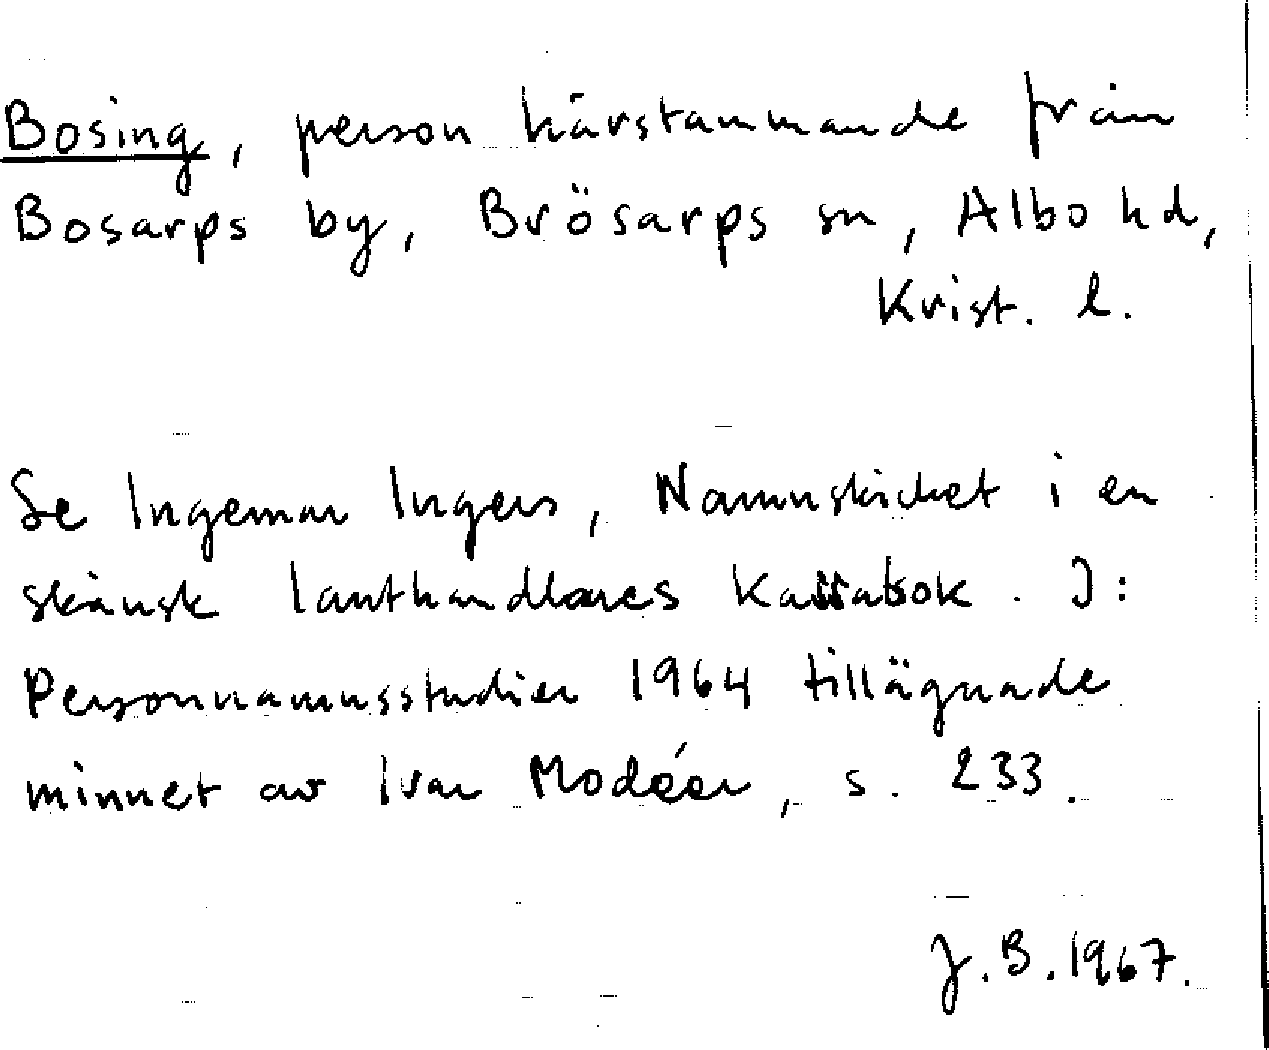 Bosing, person härstammande från
Bosarps by, Brösarps sn, Albo hd,
Krist. l.
Se Ingemar Ingers, Namnskicket i en
skånsk lanthandlares kassabok. I:
Personnamnsstudier 1964 tillägnade
minnet av Ivar Modéer, s. 233.
J.B. 1967.